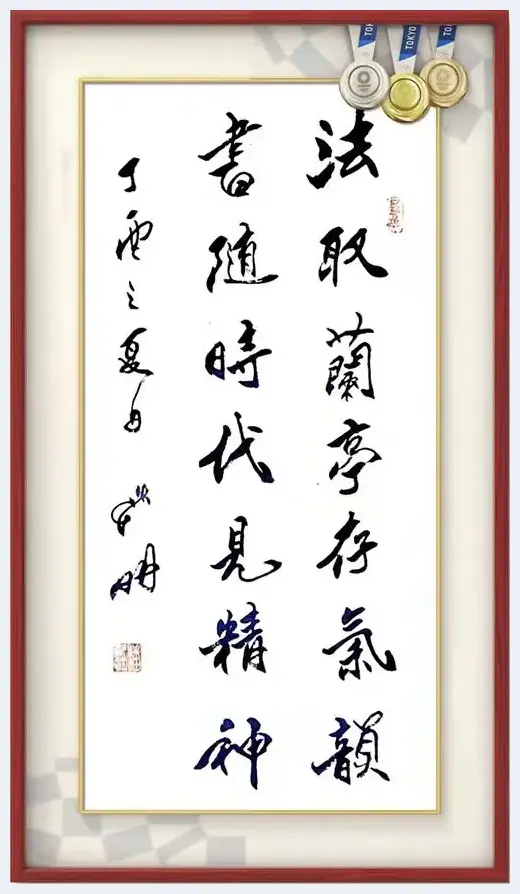 法取蘭亭存氣韻
書隨時代見精神
丁酉之夏月
TOKYO
TOKYO